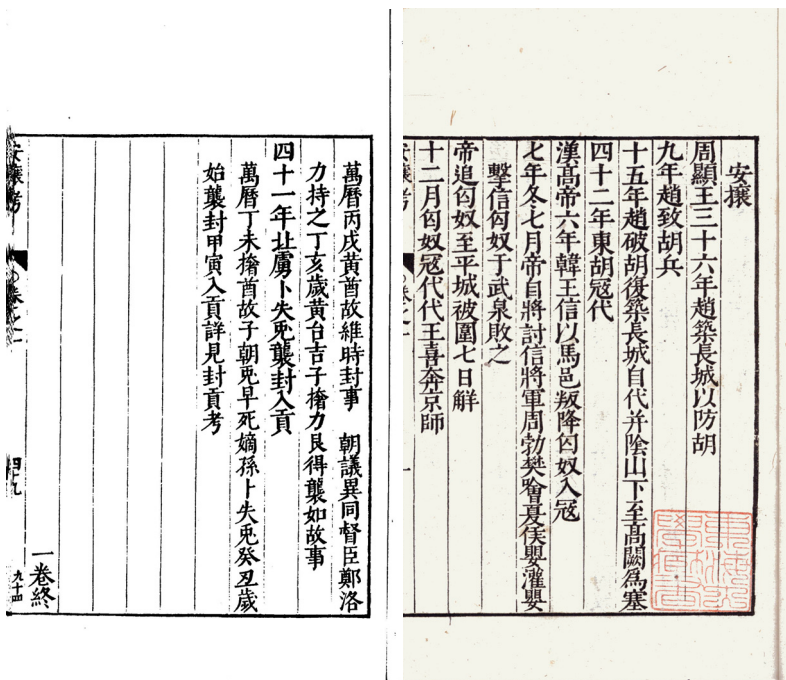 安攘
周顯王三十六年趙築長城以防胡
九年趙致胡兵
十五年趙破胡復築長城自代并陰山下至髙闕爲塞
四十二年東胡冦代
漢髙帝六年韓王信以馬邑叛降匈奴入冦
七年冬七月帝自將討信將軍周勃樊噲夏侯嬰灌嬰
擊信匈奴于武泉敗之
帝追匈奴至平城被圍七日觧
十二月匈奴冦代代王喜奔京師
安攘考 卷之一 一
萬曆丙戌黃酋故維時封事 朝議異同督臣鄭洛
力持之丁亥歲黃台吉子撦力艮得襲如故事
四十一年北虜卜失兎襲封入貢
萬曆丁未撦酋故子朝兎早死嫡孫卜失兎癸丑歲
始襲封甲寅入貢詳見封貢考
一卷終
安攘考 卷之一 九十四